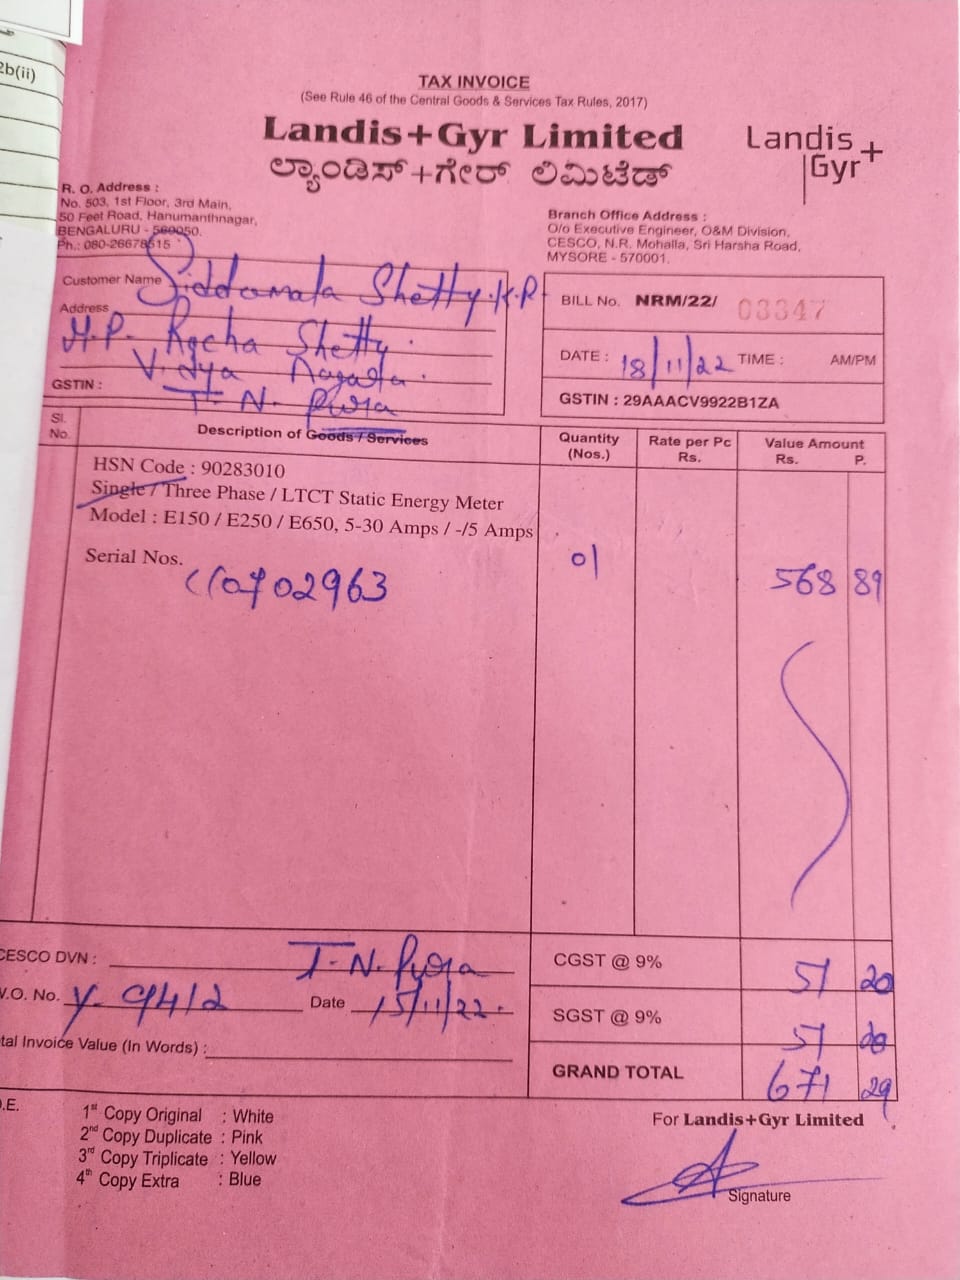 2b(ii)
TAX INVOICE
(See Rule 46 of the Central Goods & Services Tax Rules, 2017)
Landis+Gyr Limited
ಲ್ಯಾಂಡಿಸ್+ಗೇರ್ ಲಿಮಿಟೆಡ್
Landis
Gyr+
R. O. Address :
No. 503, 1st Floor, 3rd Main,
50 Feet Road, Hanumanthnagar,
BENGALURU - 560050.
Ph.: 080-26678515
Branch Office Address :
O/o Executive Engineer, O&M Division,
CESCO, N.R. Mohalla, Sri Harsha Road,
MYSORE - 570001.
Customer Name Siddamala Shetty.K.P
Address
H.P. Racha Shetty.
Vidya Nagara.
GSTIN : T. N. Pura
BILL No. NRM/22/ 03347
DATE : 18/11/22 TIME : AM/PM
GSTIN : 29AAACV9922B1ZA
Sl. No. Description of Goods / Services Quantity (Nos.) Rate per Pc Rs. Value Amount Rs. P.
HSN Code : 90283010
Single / Three Phase / LTCT Static Energy Meter
Model : E150 / E250 / E650, 5-30 Amps / -/5 Amps
Serial Nos.
02963 01 568 89
CESCO DVN : T.N. Pura
W.O. No. Y- 9412 Date 15/11/22.
tal Invoice Value (In Words) :
CGST @ 9% 51 20
SGST @ 9% 51 20
GRAND TOTAL 671 29
O.E.
1st Copy Original : White
2nd Copy Duplicate : Pink
3rd Copy Triplicate : Yellow
4th Copy Extra : Blue
For Landis+Gyr Limited
Signature